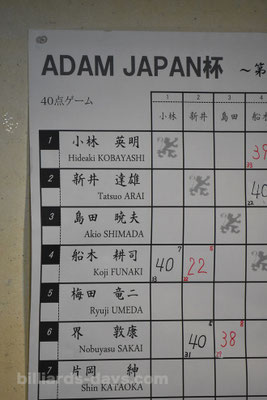 ADAM JAPAN杯 ～第
40点ゲーム
1 2 3 4
小林 新井 島田 船木
1 小林 英明
Hideaki KOBAYASHI
39
2 新井 達雄
Tatsuo ARAI
40
3 島田 暁夫
Akio SHIMADA
4 船木 耕司 40 22
Koji FUNAKI
5 梅田 竜二
Ryuji UMEDA
6 界 敦康 40 38
Nobuyasu SAKAI
7 片岡 紳
Shin KATAOKA
billiards-days.com